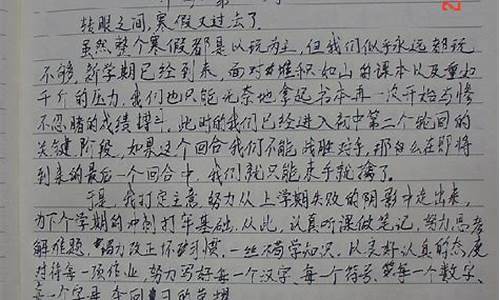 转眼之间,寒假又过去了。
虽然整个寒假都是以玩为主,但我们似乎永远都玩
不够,新学期已经到来,面对堆积如山的课本以及重如
千斤的压力,我们也只能无奈地拿起书本再一次开始与惨
不忍睹的成绩搏斗,此时的我们已经进入初中第二个轮回的
关键阶段,如果这个回合我们不能战胜对手,那么在即将
到来的最后一个回合中,我们就只能束手就擒了。
于是,我打定主意,努力从上学期失败的阴影中走出来,
为下个学期的冲刺打牢基础,从此,认真听课做笔记,努力思考
解难题,努力改正坏习惯,一丝不苟学知识。以良好认真的态度
对待每一项作业,努力写好每一个汉字、每一个符号、每一个数字、